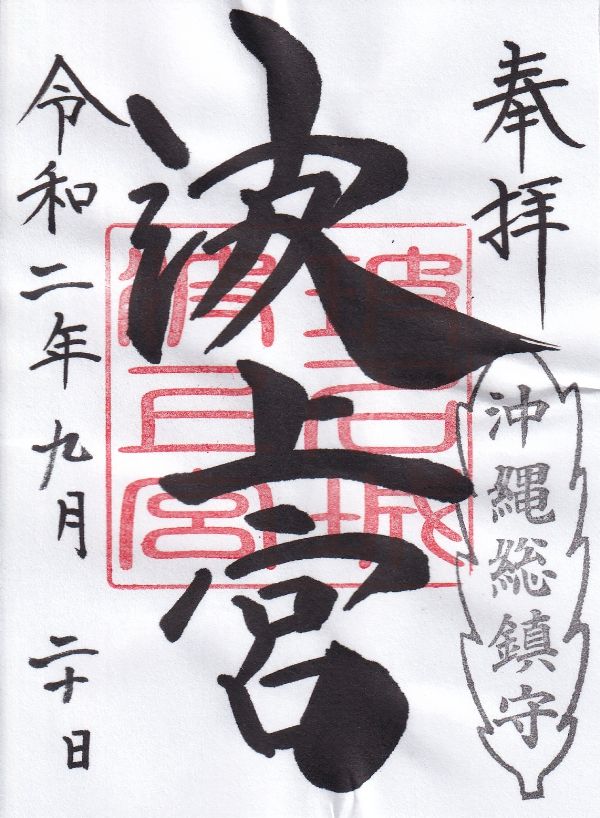 奉拝
沖縄総鎮守
波上宮
令和二年九月二十日